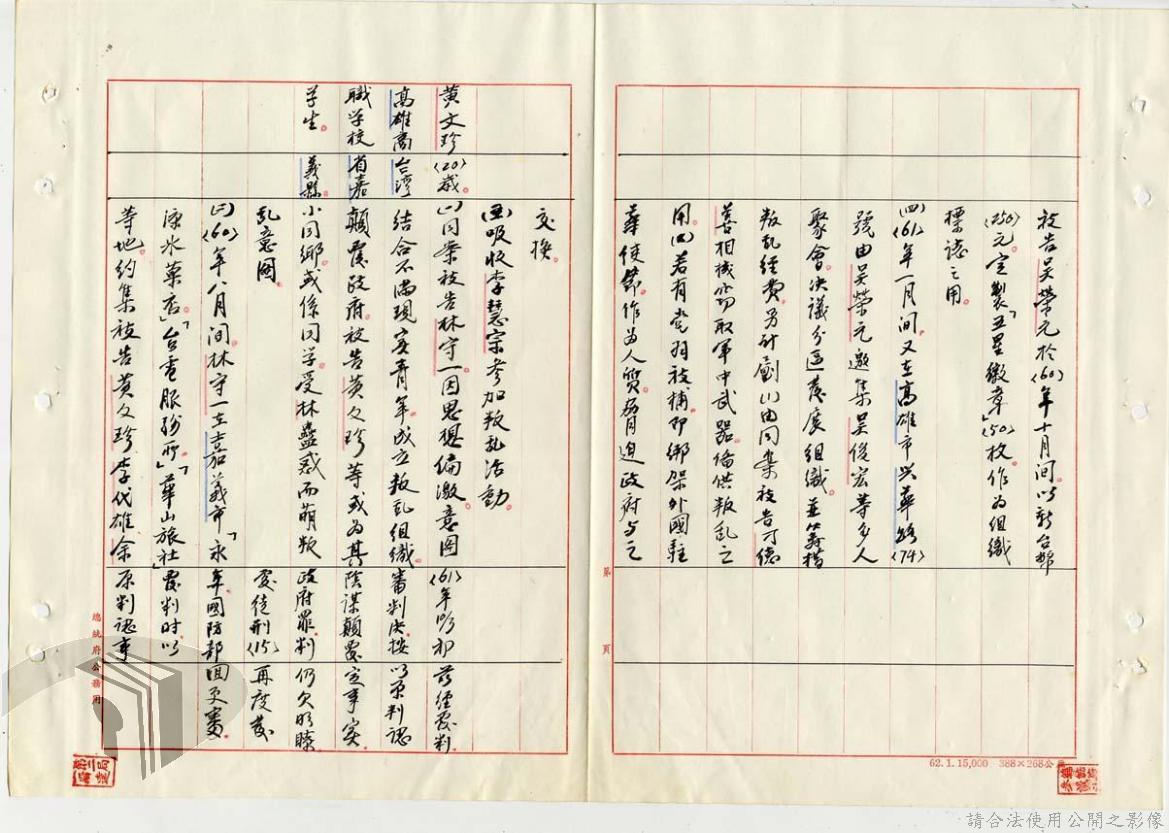 被告吳榮元於〈60〉年十月間。以新台幣
〈250〉元。定製「五星徽章」〈50〉枚作為組織
標誌之用。
㈣〈61〉年一月間。又在高雄市興華路〈74〉
號由吳榮元邀集吳俊宏等多人
聚會。決議分區發展組織。並籌措
叛亂經費。另計劃㈠由同案被告
相機竊取軍中武器。備供叛亂之
用。若有黨羽被捕。即綁架外國駐
華使節。作為人質。脅迫政府與之
交換。
吸收李慧宗參加叛亂活動。
黃文珍〈20〉歲。㈠同案被告林守一因思想偏激。意圖〈61〉年 初 經覆判
高雄商台灣結合不滿現實青年。成立叛亂組織。審判決。按以原判認
職學校省嘉顛覆政府。被告黃文珍等或為其陰謀顛覆定事實
學生。義縣。小同鄉。或係同學。受林蠱惑而萌叛政府罪。判仍欠明瞭
亂意圖處徒刑〈15〉再度發
㈡〈60〉年八月間。林守一在嘉義市「永年。國防部回更審。
康水菓店」「台電服務所」「華山旅社」覆判時。以
等地。約集被告黃文珍李代雄余原判認事
第 頁
總統府公務用
62.1.15,000 388×268公
請合法使用公開之影像